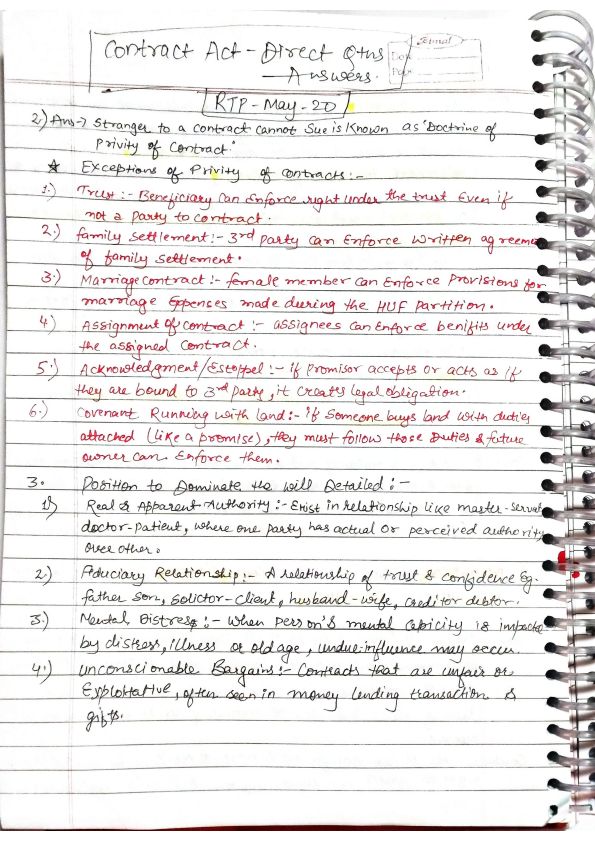 Contract Act - Direct Qtns
- Answers.
RTP - May - 20
2.) Ans → Stranger to a contract cannot Sue is Known as "Doctrine of
Privity of Contract"
★ Exceptions of Privity of contracts :-
1.) Trust :- Beneficiary can Enforce right under the trust Even if
not a party to contract.
2.) family Settlement :- 3rd party can Enforce written agreeme
of family settlement.
3.) Marriage contract :- female member can Enforce Provisions for
marriage Expenses made during the HUF Partition.
4.) Assignment of contract :- assignees can Enforce benifits under
the assigned contract.
5.) Acknowledgment/Estoppel :- if promisor accepts or acts as if
they are bound to 3rd party, it creates legal obligation.
6.) Covenant Running with land :- if Someone buys land with duties
attached (like a promise), they must follow those Duties & future
owner can Enforce them.
3. Position to Dominate the will Detailed :-
1) Real & Apparent Authority :- Exist in relationship like master-servant
doctor-patient, where one party has actual or perceived authority
over other.
2.) Fiduciary Relationship :- A relationship of trust & confidence Eg.
father son, Solictor-client, husband-wife, creditor debtor.
3.) Mental Distress :- when person's mental capicity is impacte
by distress, illness or old age, undue influence may occur.
4.) unconscionable Bargains :- Contracts that are unfair or
Exploitative, often seen in money lending transaction &
gifts.